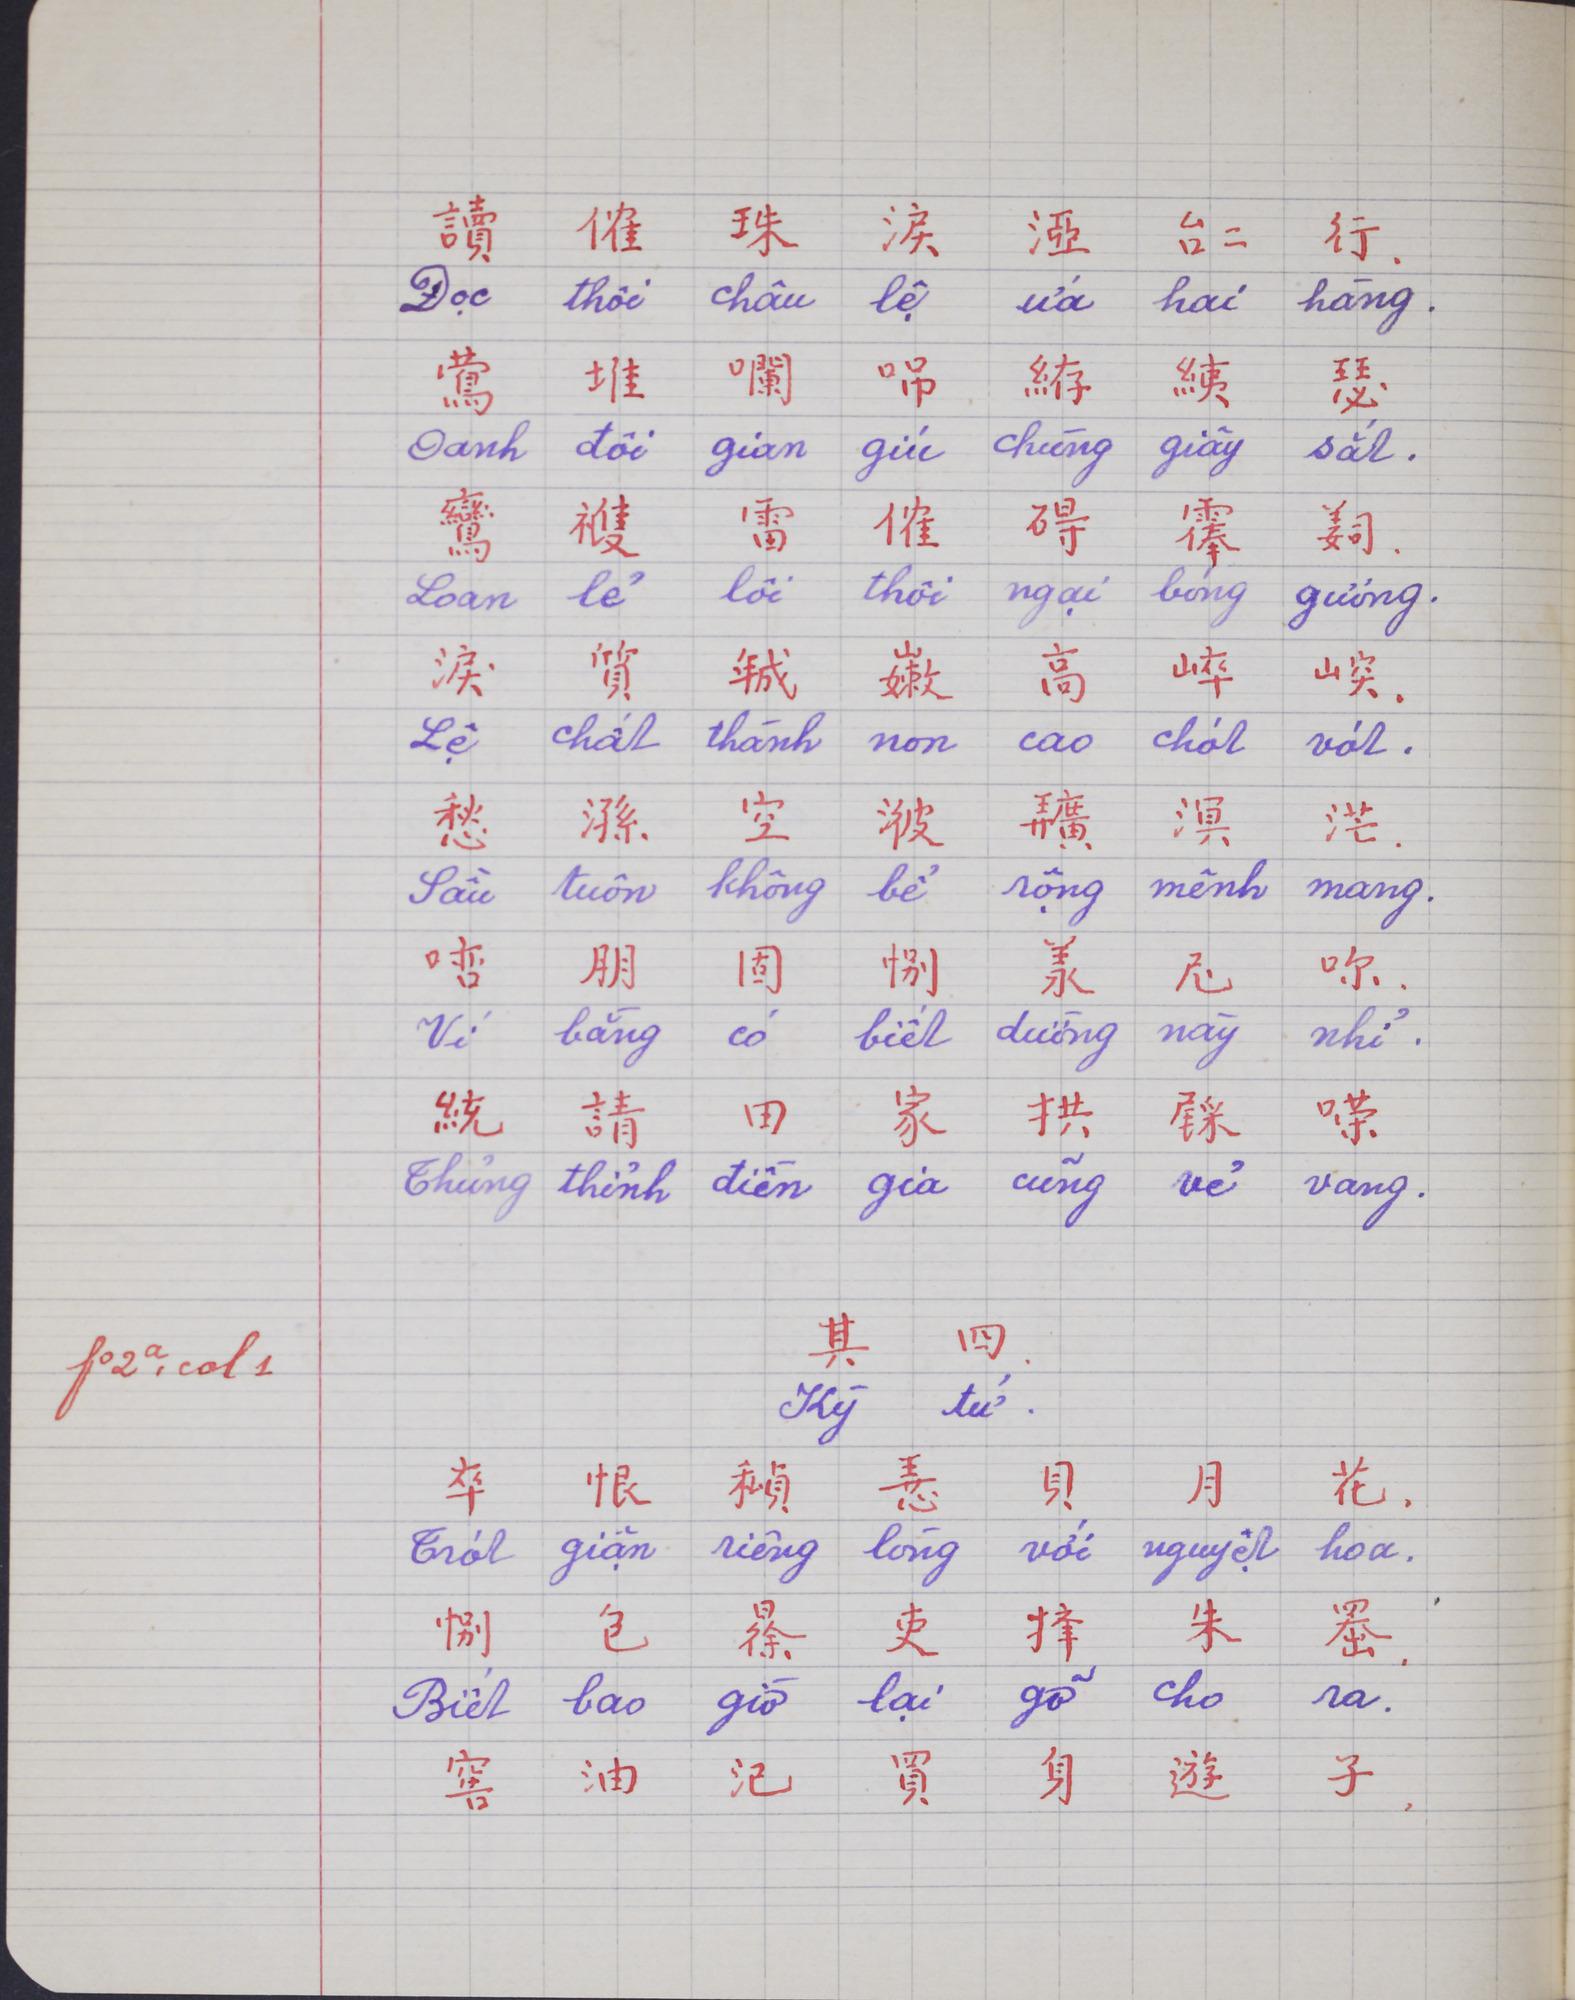 讀 傕 珠 淚 㴫 台二 行.
Đọc thôi châu lệ ứa hai hàng.
鶯 堆 囒 咞 𦀪 𦀺 瑟
Oanh đôi gian giú chùng giây sắt.
鸞 䙠 雷 傕 碍 𩃳 𦎛.
Loan lẻ lôi thôi ngại bóng gương.
淚 質 𥪝 𡽫 高 崪 㟮.
Lệ chất thành non cao chót vót.
愁 𣻆 空 𣷷 𢌊 溟 茫.
Sầu tuôn không bể rộng mênh mang.
𠸠 朋 固 別 羕 尼 𠰚.
Ví bằng có biết dường này nhỉ.
統 請 田 家 拱 𨤔 㗮
Thủng thỉnh điền gia cũng vẻ vang.
fº2ª, col 1
其 四.
Kỳ tứ.
卒 恨 𥢅 𢚸 貝 月 花.
Trót giận riêng lòng với nguyệt hoa.
別 包 𣇞 吏 擇 朱 𦋦.
Biết bao giờ lại gỡ cho ra.
窖 油 汜 買 身 遊 子.